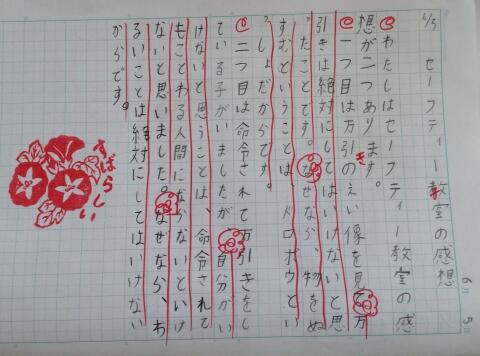 6/5 セーフティー教室の感想
わたしはセーフティー教室の感
想が二つあります。
一つ目は万引きのえい像を見て万
引きは絶対にしてはいけないと思
ったことです。なぜなら、物をぬ
すむということは、ドロボウとい
っしょだからです。
二つ目は命令されて万引きをし
ている子がいましたが、自分がい
けないと思うことは、命令されて
もことわる人間にならないといけ
ないと思いました。なぜなら、わ
るいことは絶対にしてはいけない
からです。
すばらしい